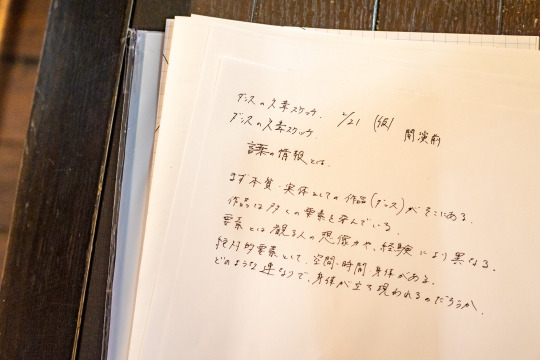 ダンスの人素スケッチ. 2/21 (仮) 開演前
ダンスの人素スケッチ
の情報とは.
まず 本質・実体としての 作品(ダンス)がそこにある.
作品は 多くの要素を孕んでいる.
要素とは 観る人の 想像力や、経験により異なる.
絶対的要素として、空間・時間・身体がある.
どのような 連なりで、身体が立ち現われるのだろうか.